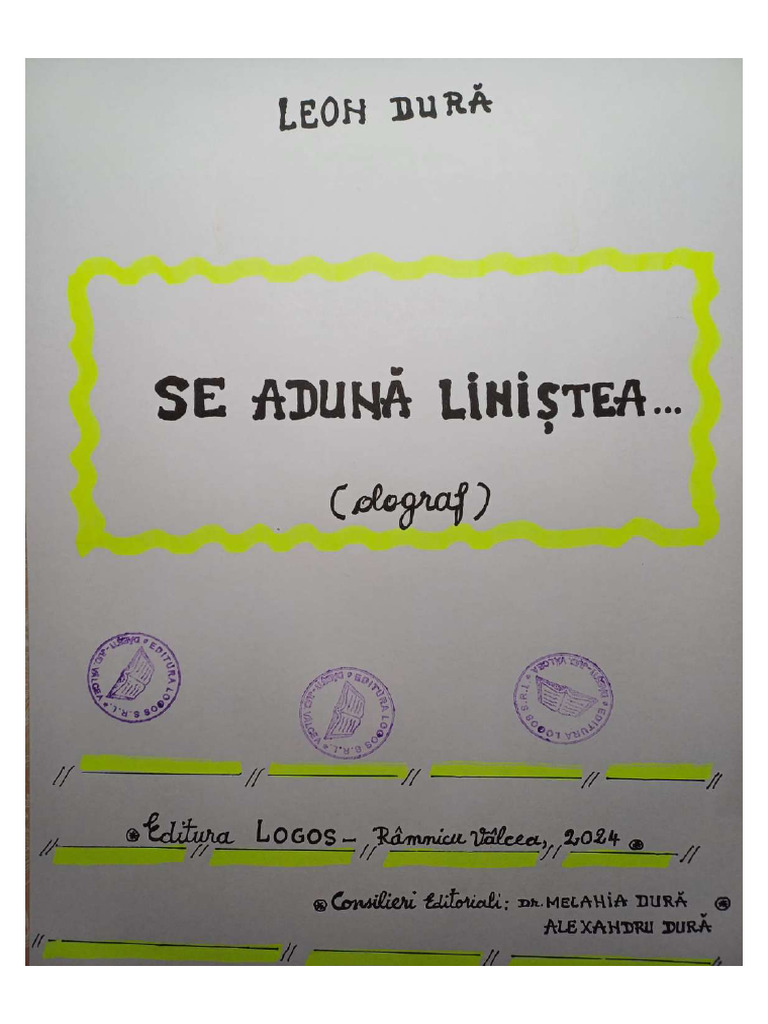 LEON DURĂ
SE ADUNĂ LINIȘTEA...
(olograf)
EDITURA LOGOS S.R.L.
EDITURA LOGOS S.R.L.
EDITURA LOGOS S.R.L.
Editura LOGOS - Râmnicu Vâlcea, 2024
Consilieri Editoriali: DR. MELANIA DURĂ
ALEXANDRU DURĂ